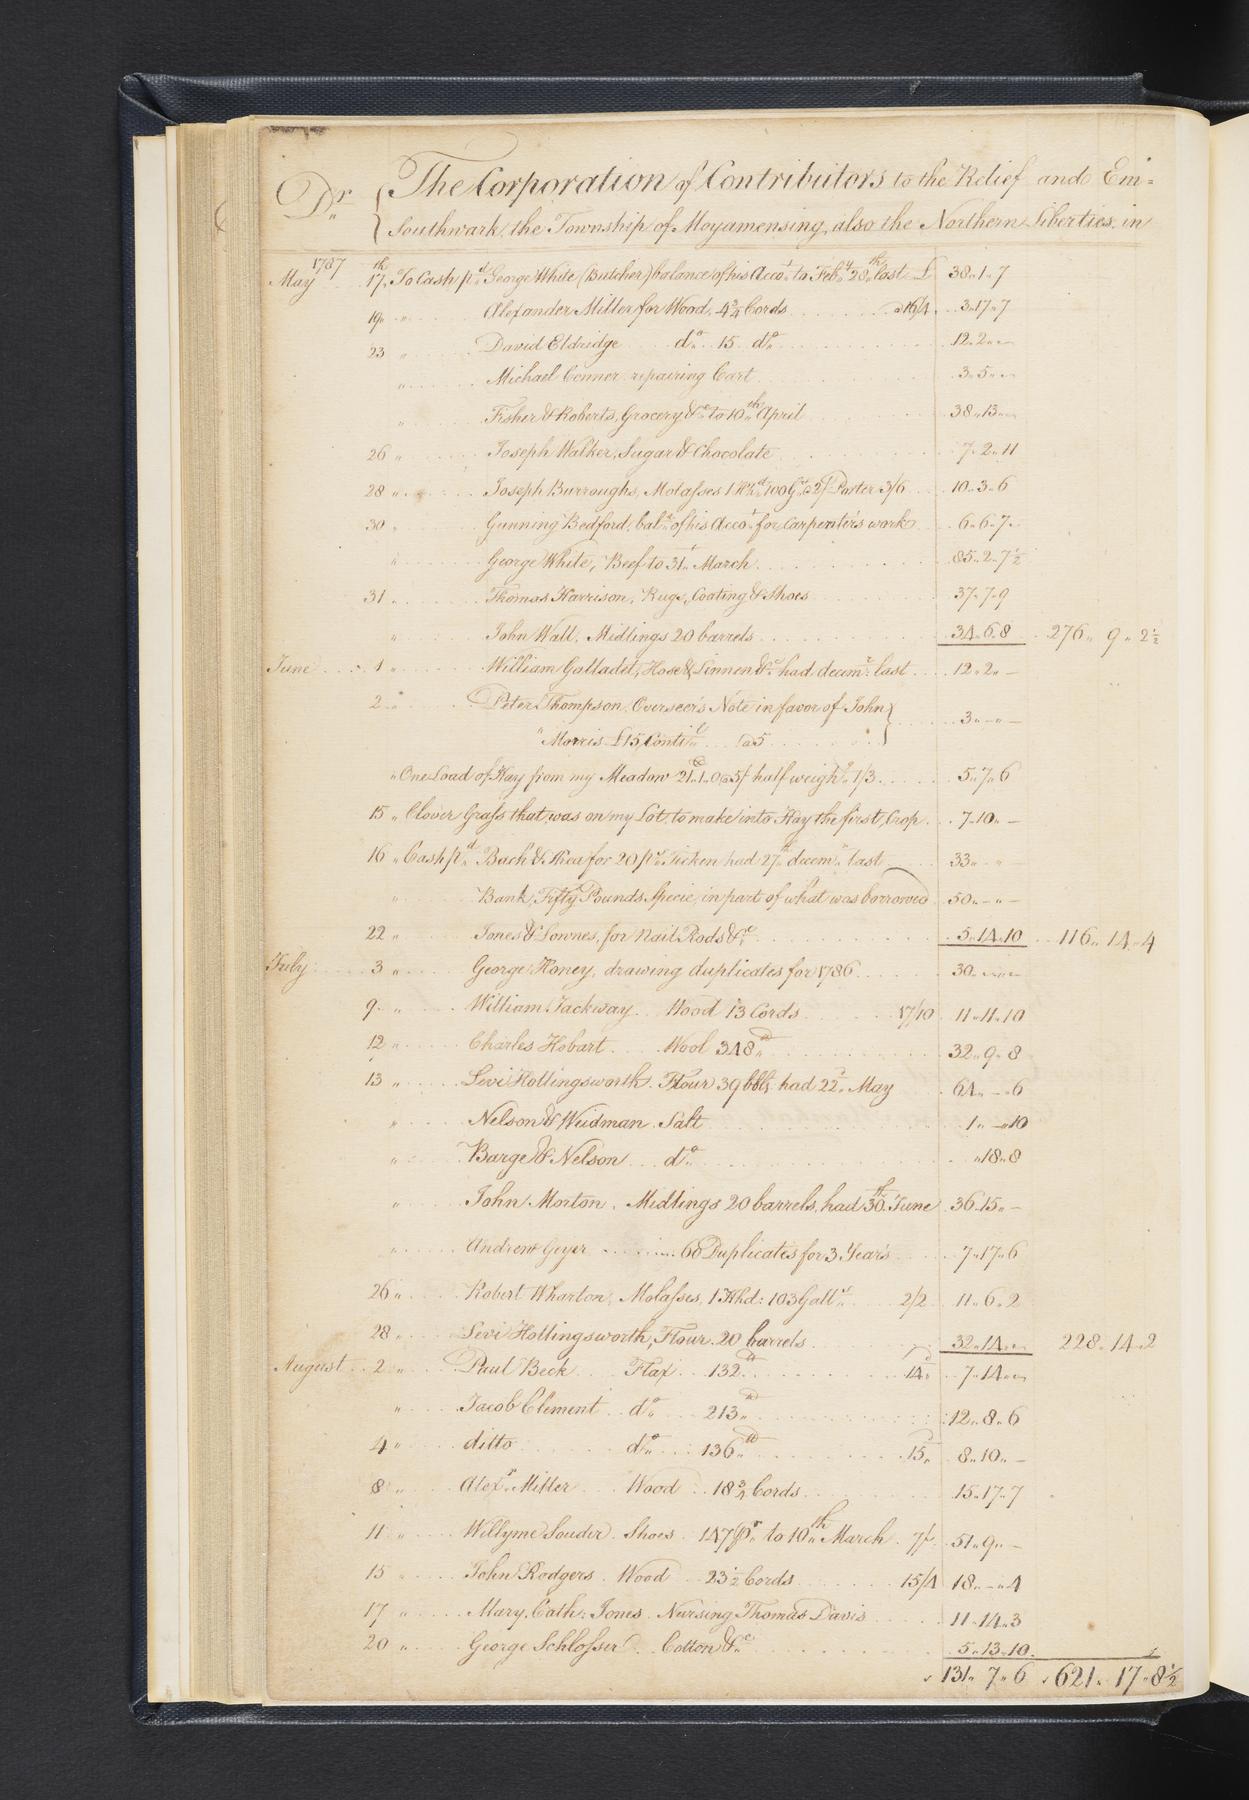 Dr. { The Corporation of Contributors to the Relief and Em=
Southwark, the Township of Moyamensing, also the Northern Liberties, in
1787
May 17th To Cash pd. George White (Butcher) balance of his Accot. to Feby. 28th last £ 38..1..7
19 " Alexander Miller for Wood, 4¾ Cords @16/4 3..17..7
23 " David Eldridge do. 15 do. 12..2..—
" Michael Conner repairing Cart 3..5..—
" Fisher & Roberts, Grocery &c. to 10th April 38..13..—
26 " Joseph Walker, Sugar & Chocolate 7..2..11
28 " Joseph Burroughs, Molasses 1 Hhd. 100 Gs. @2/ Porter 3/6 10..3..6
30 " Gunning Bedford, bale. of his Accot. for Carpenter's work 6..6..7
" George White, Beef to 31st March 85..2..7½
31 " Thomas Harrison, Rugs, Coating & Shoes 37..7..9
" John Wall, Midlings 20 barrels 34..6..8 276.. 9.. 2½
June 1 " William Galladet, Hose & Linnen &c. had decemr. last 12..2..—
2 " Peter Thompson Overseer's Note in favor of John }
" Morris £15, Contil. @5 3..—..—
" One Load of Hay from my Meadow 21..1..0 @5/ half weighg. 1/3 5..7..6
15 " Clover Grass that was on my Lot, to make into Hay the first Crop 7..10..—
16 " Cash pd. Bach & Shea for 20 ps. Ticken had 27th decemr. last 33..—..—
" Bank, Fifty Pounds Specie, in part of what was borrowed 50..—..—
22 " Jones & Lownes, for Nail Rods &c. 5..14..10 116.. 14..4
July 3 " George Honey, drawing duplicates for 1786 30..—..—
9 " William Jackway Wood 13 Cords 17/10 11..11..10
12 " Charles Hobart Wool 348 lb. 32..9..8
13 " Levi Hollingsworth Flour 39 bbls. had 22d. May 64..—..6
" Nelson & Weidman Salt 1..—..10
" Barge & Nelson do. "18..8
" John Morton, Midlings 20 barrels, had 30th June 36..15..—
" Andrew Geyer 60 Duplicates for 3 Years 7..17..6
26 " Robert Wharton, Molasses, 1 Hhd: 103 Galls. 2/2 11..6..2
28 " Levi Hollingsworth, Flour 20 barrels 32..14..— 228..14..2
August 2 " Paul Beck Flax 132 lb. 14d. 7..14..—
" Jacob Clement do. 213 lb. 12..8..6
4 " ditto do. 136 lb. 15d. 8..10..—
8 " Alexr. Miller Wood 18¾ Cords 15..17..7
11 " Willyme Souder Shoes 147 pr. to 10th March 7/ 51..9..—
15 " John Rodgers Wood 23½ Cords 15/4 18..—..4
17 " Mary Cath: Jones Nursing Thomas Davis 11..14..3
20 " George Schlosser Cotton &c. 5..13..10
131.. 7.. 6 621.. 17..8½